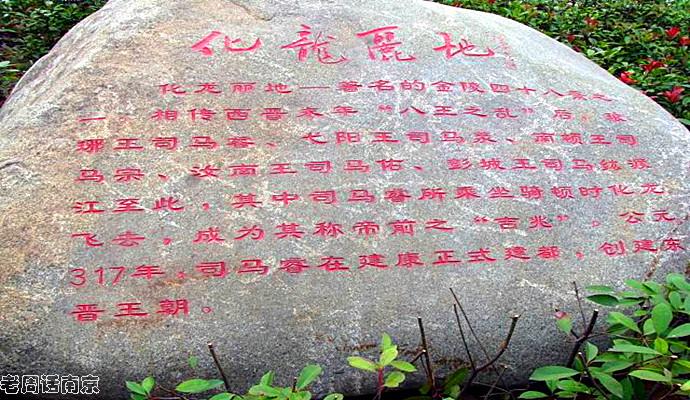 化龍麗地
化龙丽地—著名的金陵四十八景之
一。相传西晋末年“八王之乱”后，琅
琊王司马睿、弋阳王司马羕、南顿王司
马宗、汝南王司马佑、彭城王司马纮渡
江至此，其中司马睿所乘坐骑顿时化龙
飞去，成为其称帝前之“吉兆”。公元
317年，司马睿在建康正式建都，创建东
晋王朝。
老周话南京